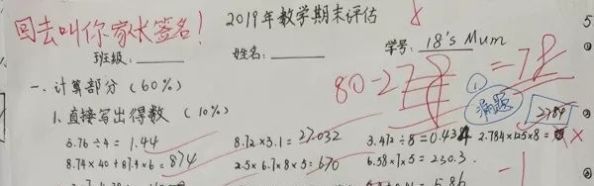 回去叫你家长签名!
2019年数学期末评估
班级:
姓名:
学号: 18's Mum
一、计算部分 (60%)
80-2
=78
1. 直接写出得数 (10%)
① 漏题
2784
5.76÷4= 1.44
8.72×3.1= 27.032
3.472÷8=0.434
2.784×125×8=
8.74×40+87.4×6= 874
2.5×6.7×8×5= 670
6.58×7×5= 230.3
-1